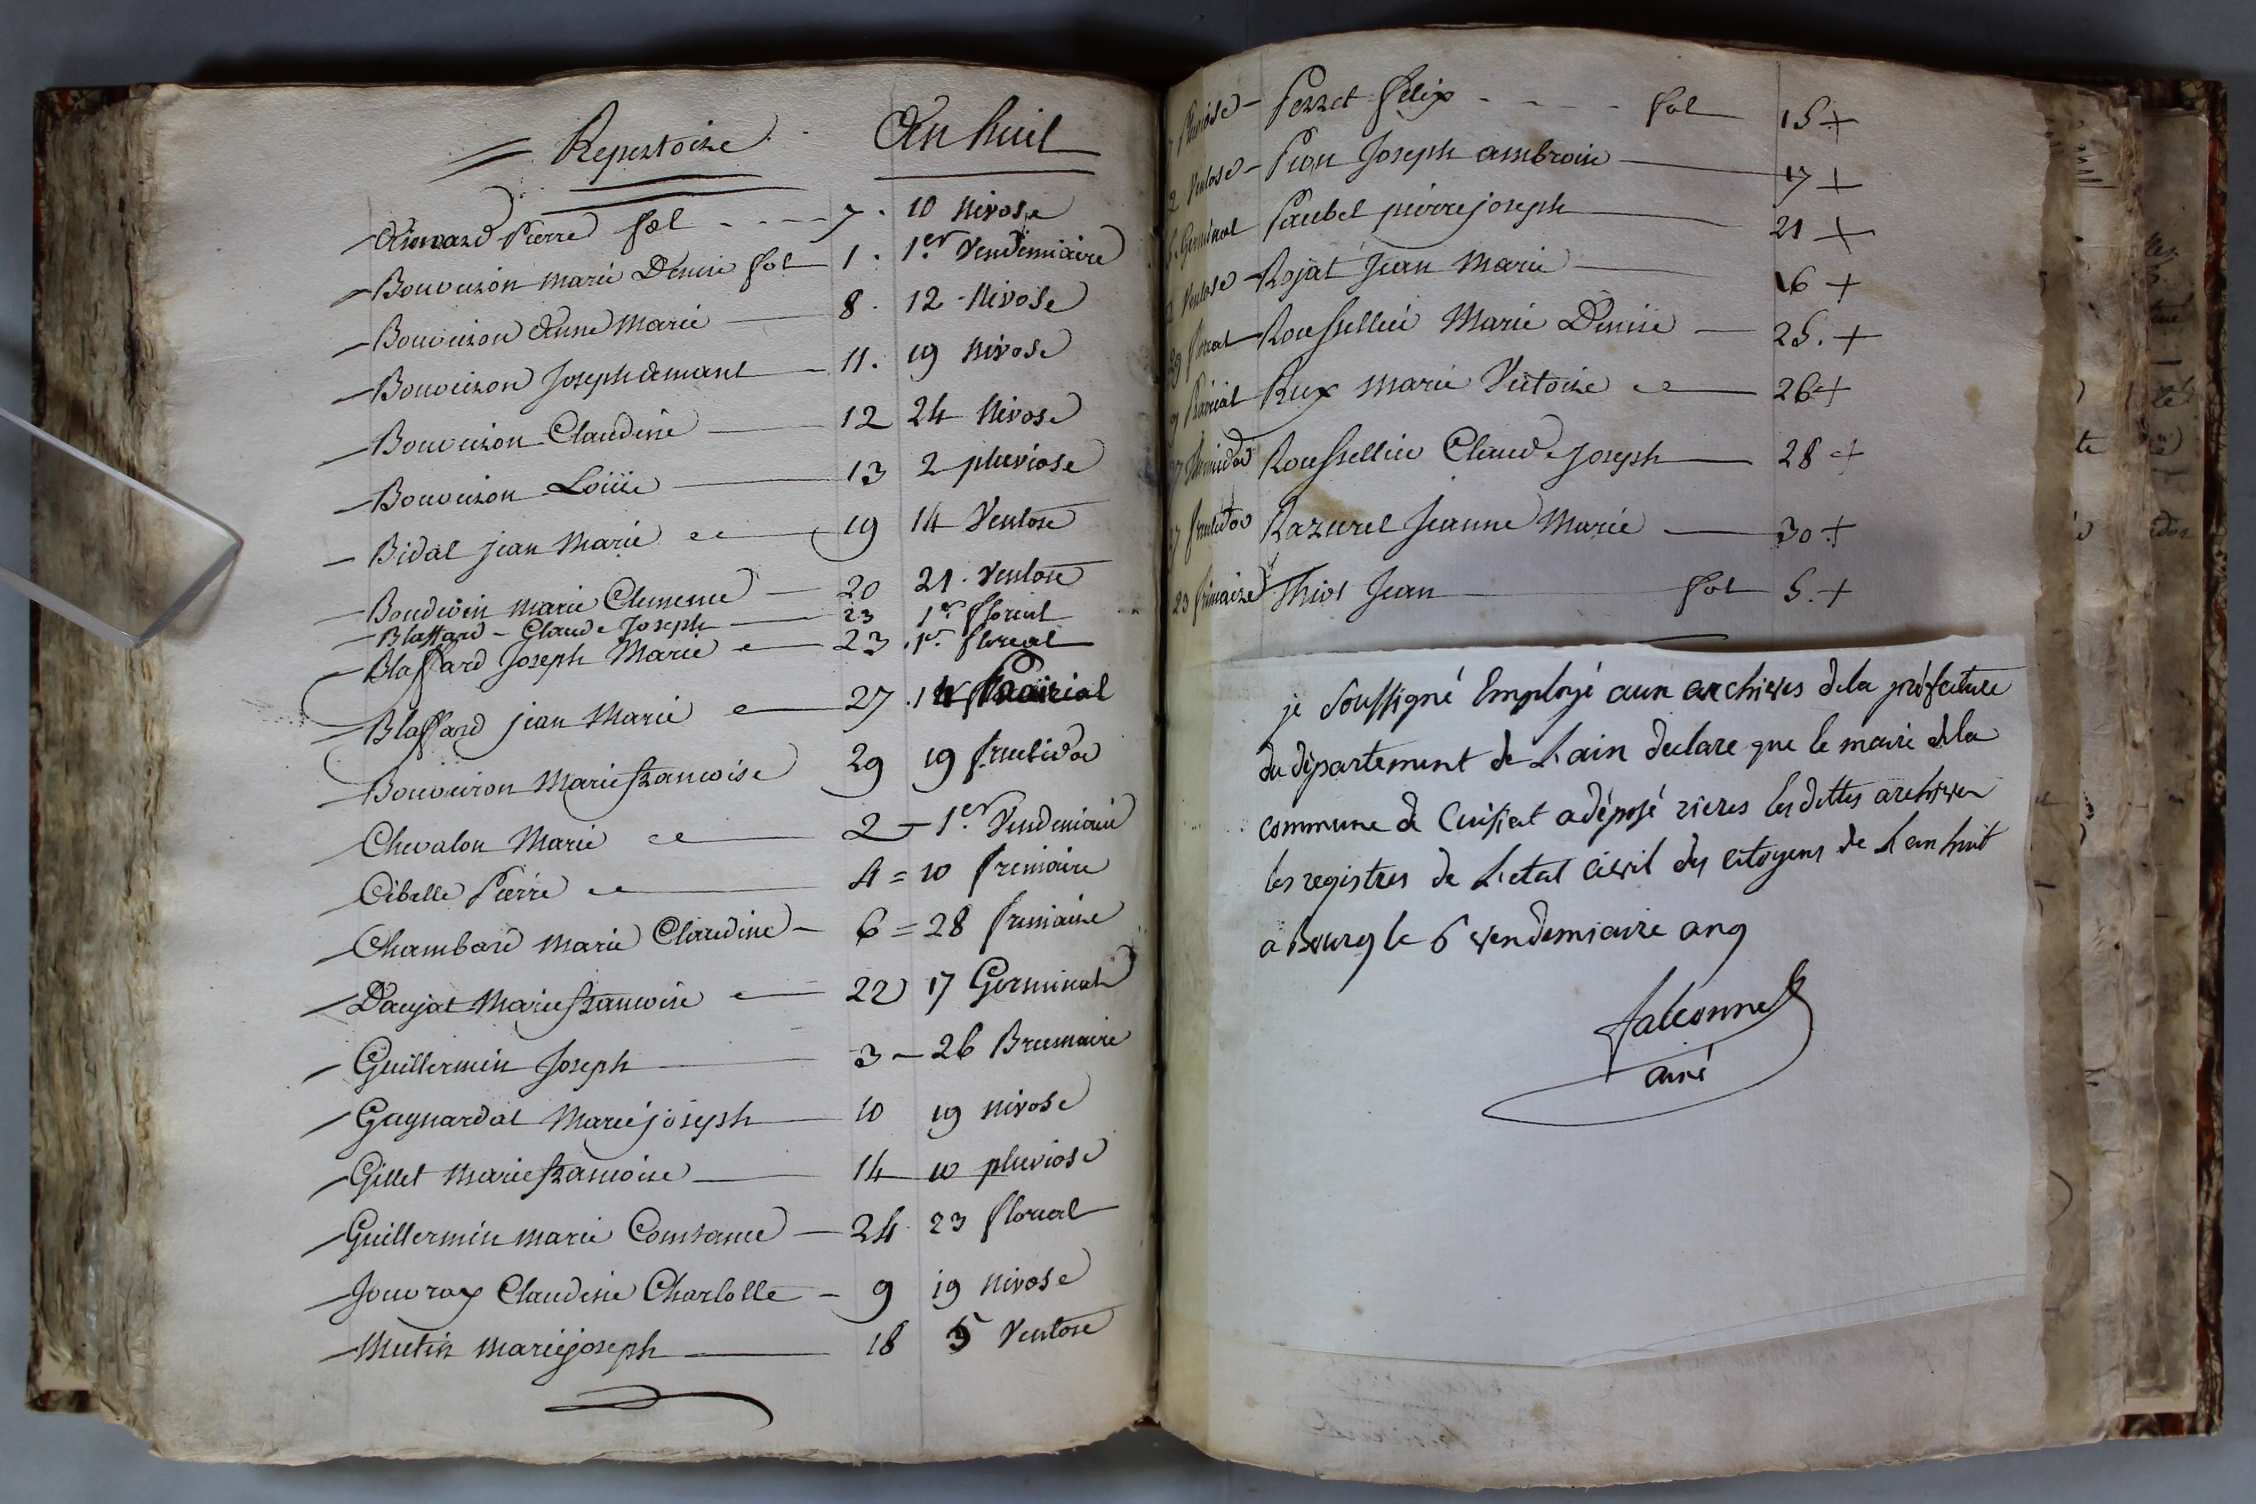 Repertoire An huit
Aimard Pierre fol 7. 10 Nivose
Bouveiron marie Denise fol 1. 1er Vendemiaire
Bouveiron Anne Marie 8. 12 Nivose
Bouveiron Joseph amant 11. 19 Nivose
Bouveiron Claudine 12 24 Nivose
Bouveiron Loüise 13 2 pluviose
Bidal jean Marie 19 14 Ventose
Boudvin marie Clemence 20 21. Ventose
Blaffard - Claude Joseph 23 1er floreal
Blaffard Joseph Marie 23. 1er floreal
Blaffard jean Marie 27. 14 Prairial
Bouveiron Marie francoise 29 19 fructidor
Chevalon Marie 2 - 1er Vendemiaire
Cibelle Pierre 4 = 10 frimaire
Chambard marie Claudine 6 = 28 frimaire
Daujat Marie francoise 22 17 Germinal
Guillermin Joseph 3 - 26 Brumaire
Gagnardat Marie joseph 10 19 nivose
Gillet Marie francoise 14 10 pluviose
Guillermin marie Constance 24. 23 floreal
Jouvray Claudine Charlotte - 9 19 nivose
Mutin marie joseph 18 5 Ventose
Pluviose - Perret felix fol 15 +
2 Ventose - Pion Joseph ambroise 17 +
Germinal Paubel pierre joseph 21 +
2 Ventose - Rojat Jean Marie 16 +
29 floreal Roussellier Marie Denise 25. +
9 Prairial Rux marie Victoire 26 +
27 Thermidor Roussellier Claude Joseph 28 +
27 fructidor Razurel Jeanne Marie 30 +
23 frimaire Thios Jean fol 5. +
je Soussigné Employé aux archives de la préfecture
du département de L'ain declare que le maire de la
commune de Cuisiat a déposé rieres les dittes archives
les registres de L'etat civil des citoyens de L'an huit
a Bourg le 6 vendemiaire an 9
falconnet
ainé